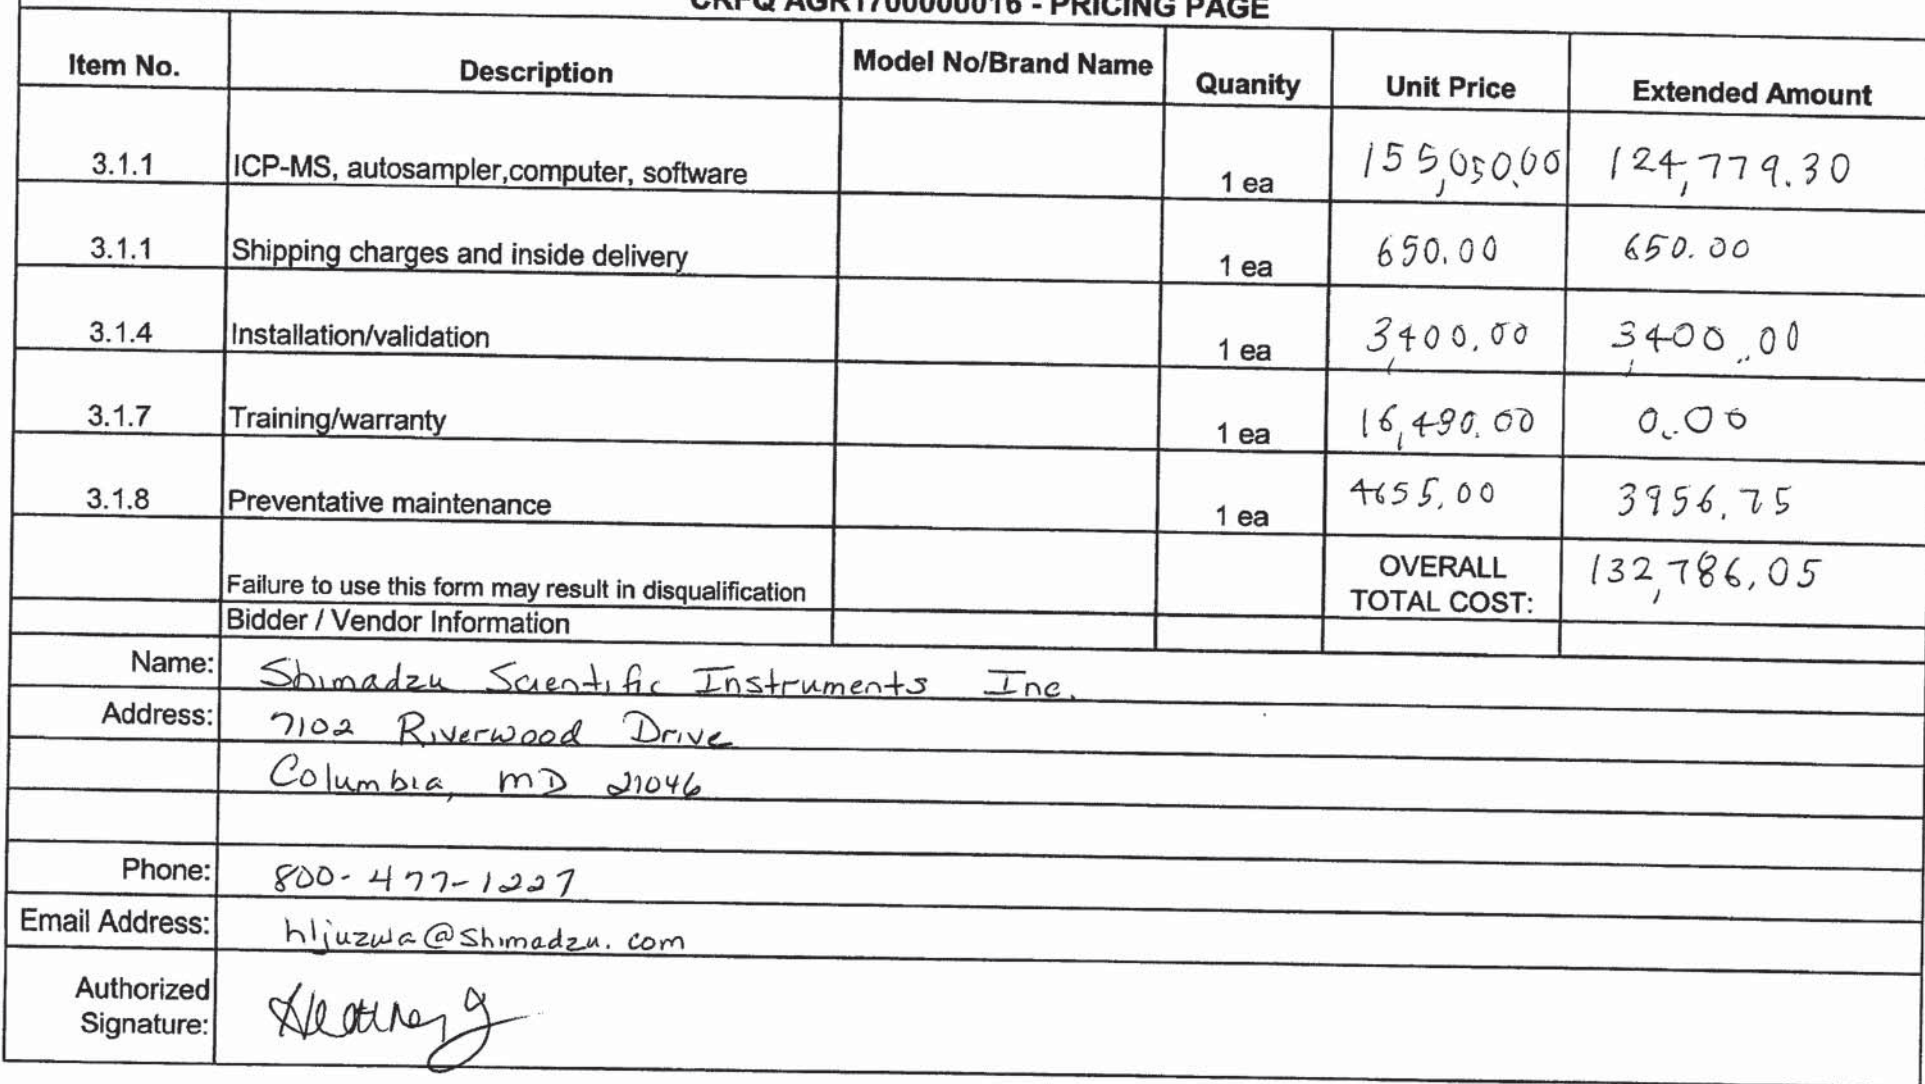 CRFQ AGR1700000016 - PRICING PAGE
Item No. Description Model No/Brand Name Quanity Unit Price Extended Amount
3.1.1 ICP-MS, autosampler,computer, software 1 ea 155,050.00 124,779.30
3.1.1 Shipping charges and inside delivery 1 ea 650.00 650.00
3.1.4 Installation/validation 1 ea 3,400.00 3,400.00
3.1.7 Training/warranty 1 ea 16,490.00 0.00
3.1.8 Preventative maintenance 1 ea 4655.00 3956.75
Failure to use this form may result in disqualification OVERALL TOTAL COST: 132,786.05
Bidder / Vendor Information
Name: Shimadzu Scientific Instruments Inc.
Address: 7102 Riverwood Drive
Columbia, MD 21046
Phone: 800-477-1227
Email Address: hljuzwa@shimadzu.com
Authorized
Signature: